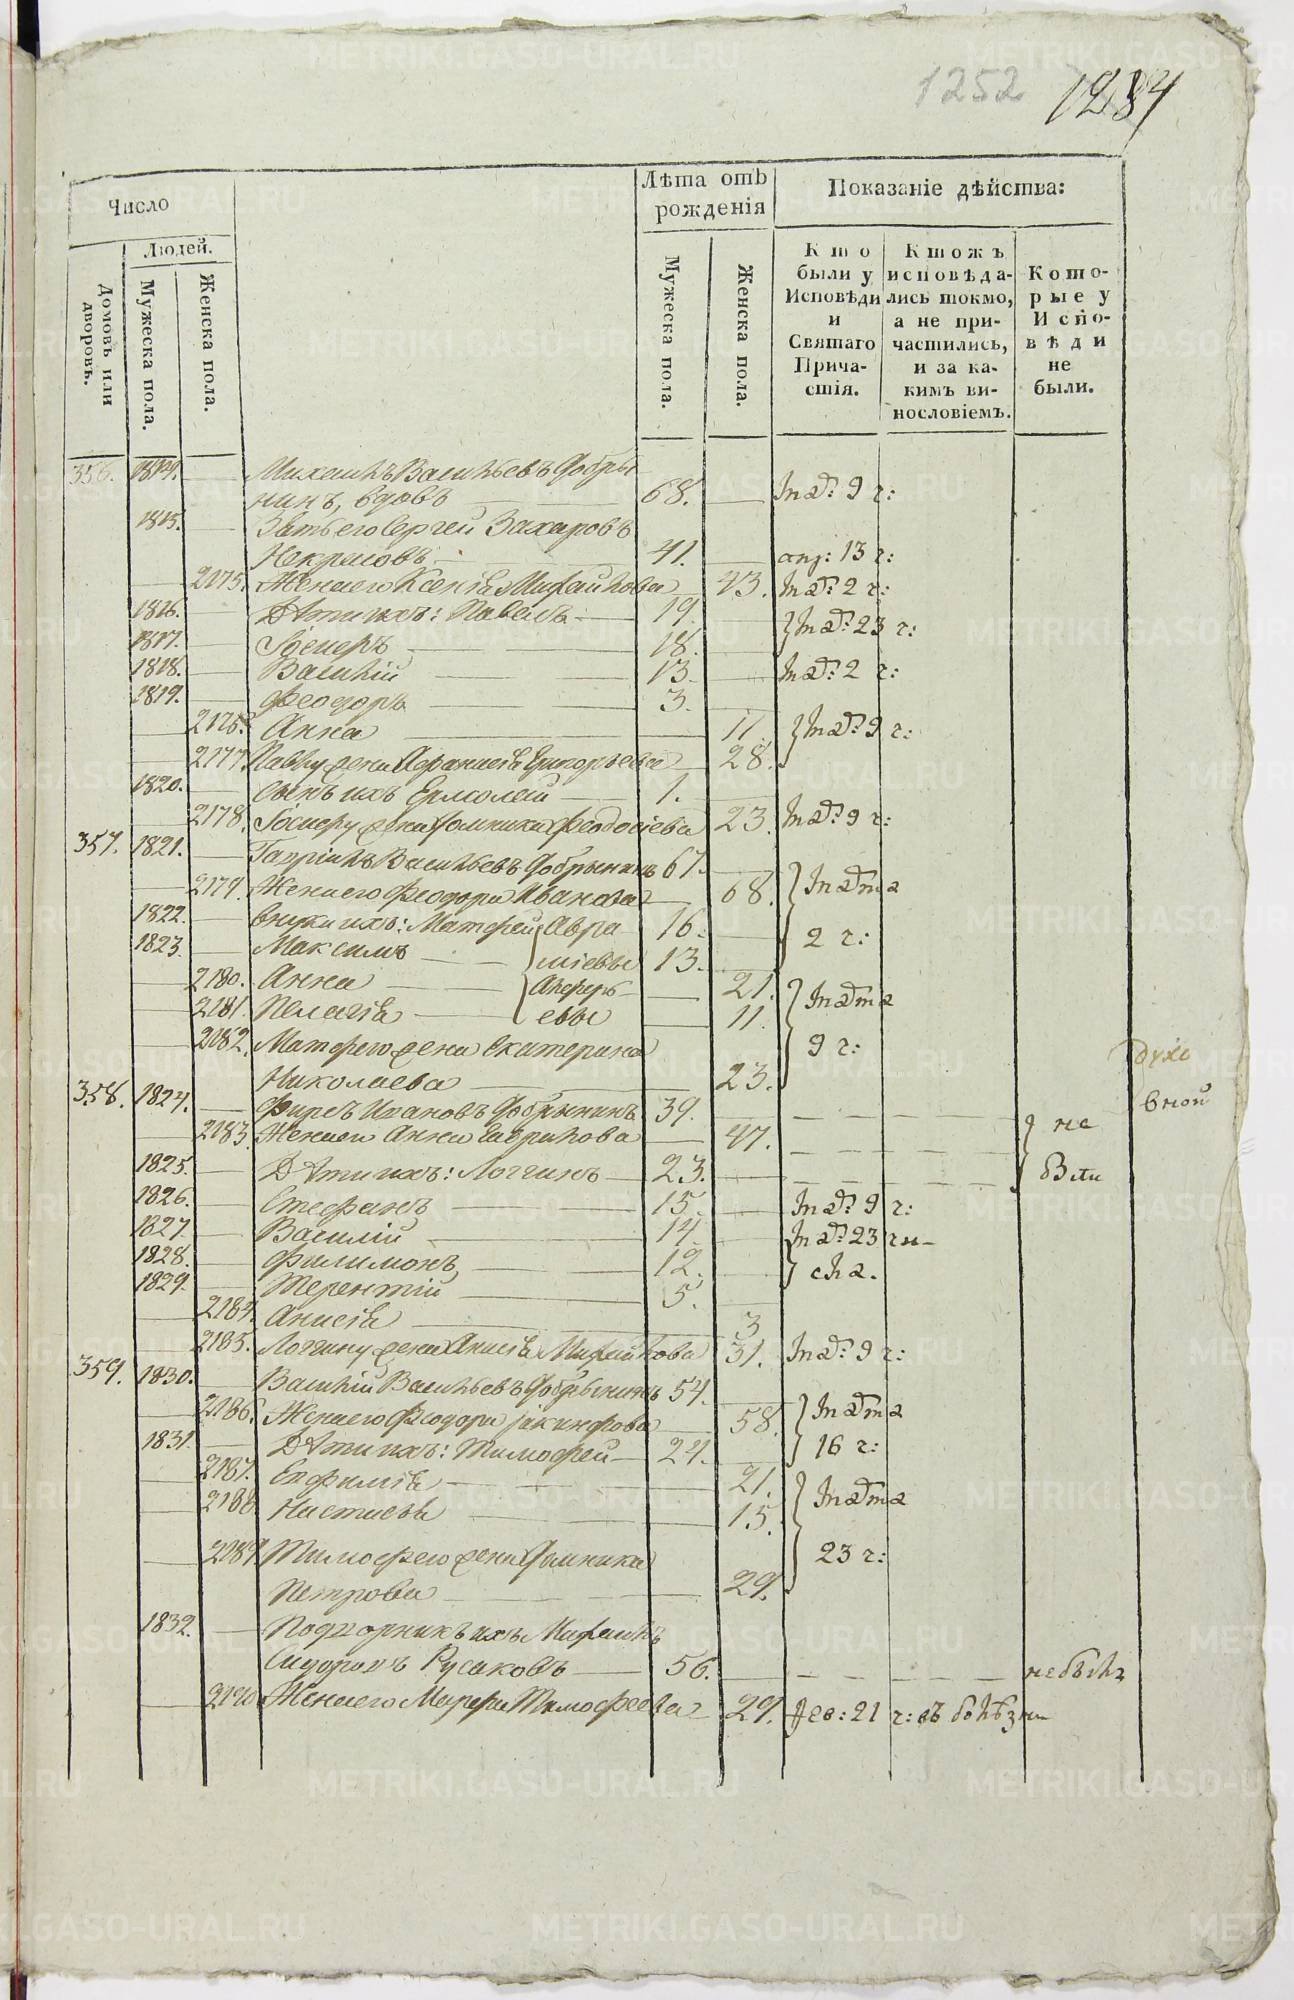 1252 1234
Число
Лѣта отъ рожденія
Показаніе дѣйства:
Домовъ или дворовъ.
Людей.
Мужеска пола.
Женска пола.
Мужеска пола.
Женска пола.
Кто были у Исповѣди и Святаго Причастія.
Ктожъ исповѣдались токмо, а не причастились, и за какимъ винословіемъ.
Которые у Исповѣди не были.
356. 1814. Михаилъ Васильевъ Добры
нинъ, вдовъ 68. 9 г:
1815. Зять его Сергей Захаровъ
Некрасовъ 41. апр: 13 г:
2175. Жена его Ксенія Михайлова 43. 2 г:
1816. Дѣти ихъ: Павелъ 19. 23 г:
1817. Іосифъ 18.
1818. Василій 13. 2 г:
1819. Феодоръ 3.
2176. Анна 11. 9 г:
2177. Павлу жена Афанасія Григорьева 28.
1820. Сынъ ихъ Ермолай 1.
2178. Іосифу жена Домника Феодосіева 23. 9 г:
357. 1821. Гавріилъ Васильевъ Добрынинъ 67.
2179. Жена его Феодора Иванова 68. Марта
1822. внуки ихъ: Матфей Авра 16. 2 г:
1823. Максимъ міевы 13.
2180. Анна Алфер 21. Марта
2181. Пелагія евы 11.
2182. Матфею жена Екатерина 9 г:
Николаева 23.
духо
вной
358. 1824. Фирсъ Ивановъ Добрынинъ 39.
2183. Жена его Анна Гаврилова 47. не
1825. Дѣти ихъ: Логгинъ 23. были
1826. Стефанъ 15. 9 г:
1827. Василій 14. 23 чи-
1828. Филимонъ 12. сла.
1829. Терентій 5.
2184. Анисія 3
2185. Логгину жена Анисія Михайлова 31. 9 г:
359. 1830. Василій Васильевъ Добрынинъ 54.
2186. Жена его Феодора Іакинфова 58. Марта
1831. Дѣти ихъ: Тимофей 24. 16 г:
2187. Евфимія 21. Марта
2188. Настасья 15.
2189. Тимофею жена Домника 23 г:
Петрова 29.
1832. Подворникъ ихъ Михаилъ
Сидоровъ Русаковъ 56. не былъ
2190. Жена его Марфа Тимофеева 29. фев: 21 г: въ болѣзни